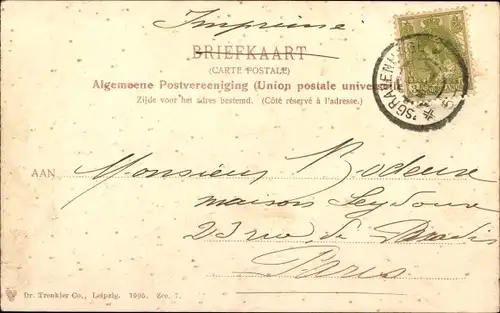 Imprimé
BRIEFKAART
(CARTE POSTALE)
Algemeene Postvereeniging (Union postale universelle)
Zijde voor het adres bestemd. (Côté réservé à l'adresse.)
'SGRAVENHAGE
AAN Monsieur
maison Seydoux
23 rue de Paradis
Paris
Dr. Trenkler Co., Leipzig. 1905. Zee. 7.